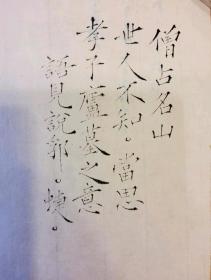 僧占名山
世人不知。當思
孝子廬墓之意
語見說郛。